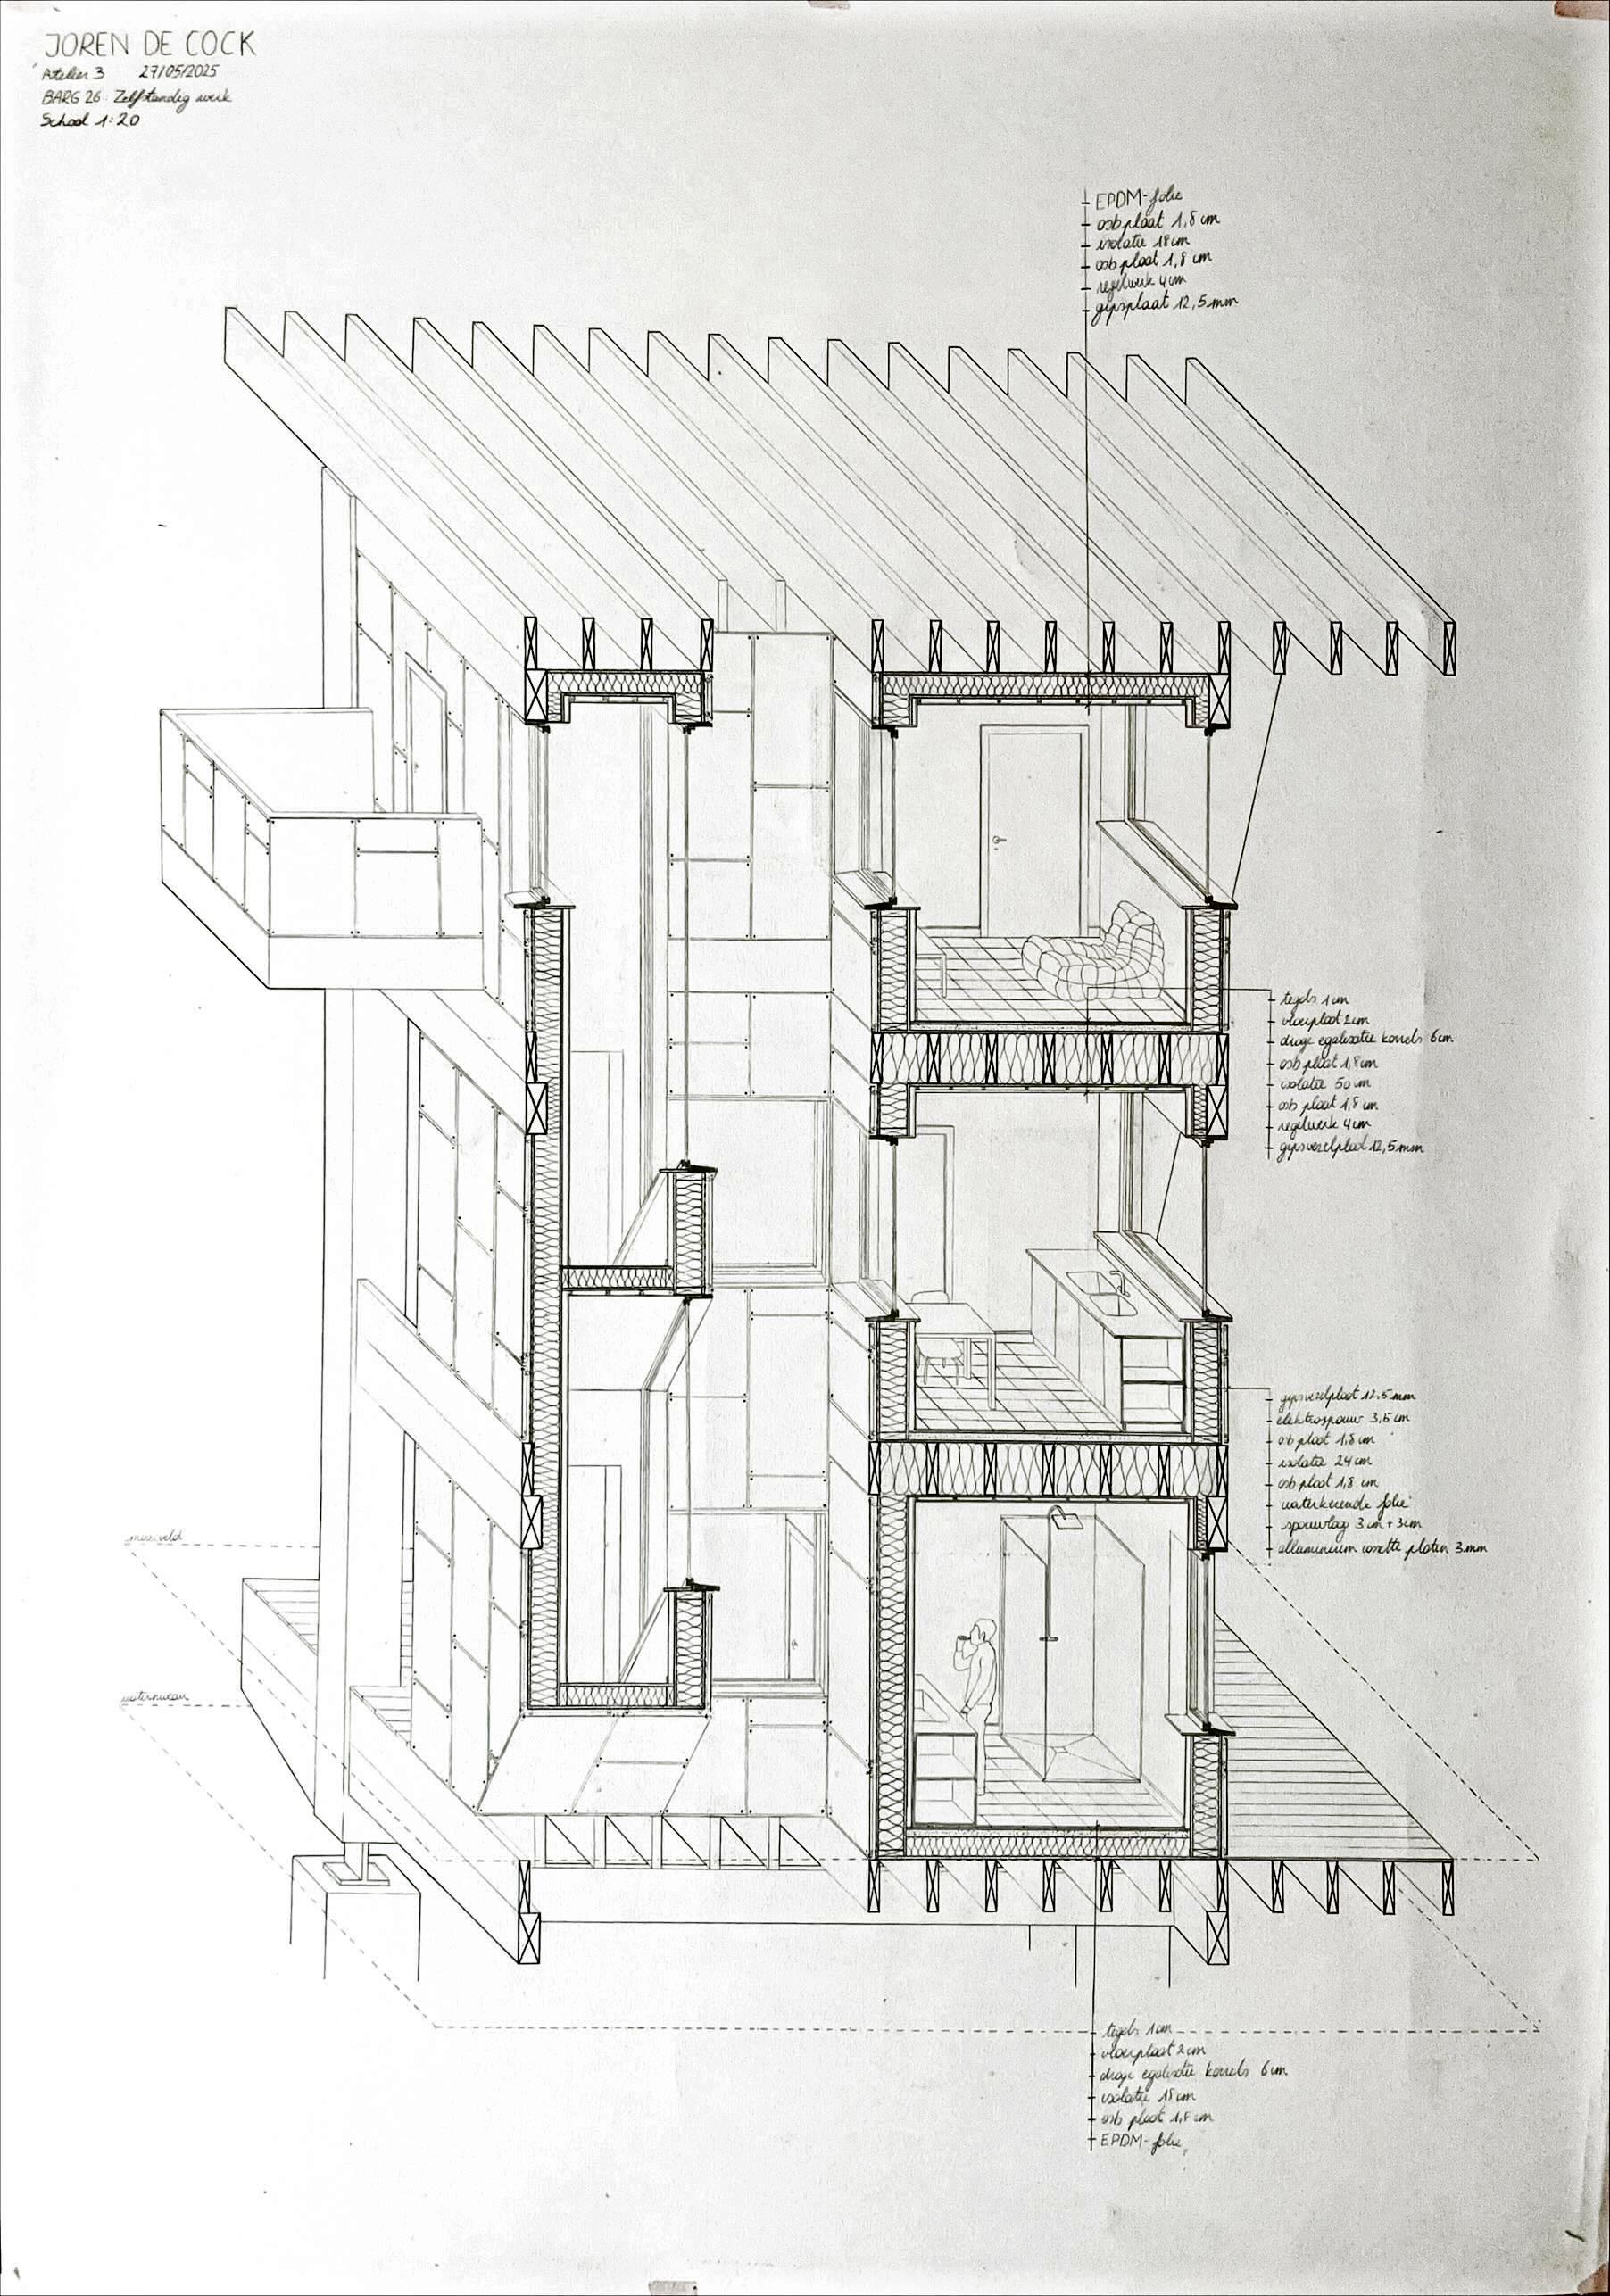 JOREN DE COCK
Atelier 3 27/05/2025
BARG 26 Zelfstandig werk
School 1:20
EPDM-folie
osb plaat 1,8 cm
isolatie 18 cm
osb plaat 1,8 cm
regelwerk 4 cm
gipsplaat 12,5 mm
tegels 1 cm
vloerplaat 2 cm
droge egalisatie korrels 6 cm
osb plaat 1,8 cm
isolatie 50 cm
osb plaat 1,8 cm
regelwerk 4 cm
gipsvezelplaat 12,5 mm
gipsvezelplaat 12,5 mm
elektrospouw 3,5 cm
osb plaat 1,8 cm
isolatie 24 cm
osb plaat 1,8 cm
waterkerende folie
spouwlag 3 cm + 3 cm
alluminium casette platen 3 mm
maaiveld
waterniveau
tegels 1 cm
vloerplaat 2 cm
droge egalisatie korrels 6 cm
isolatie 18 cm
osb plaat 1,8 cm
EPDM-folie